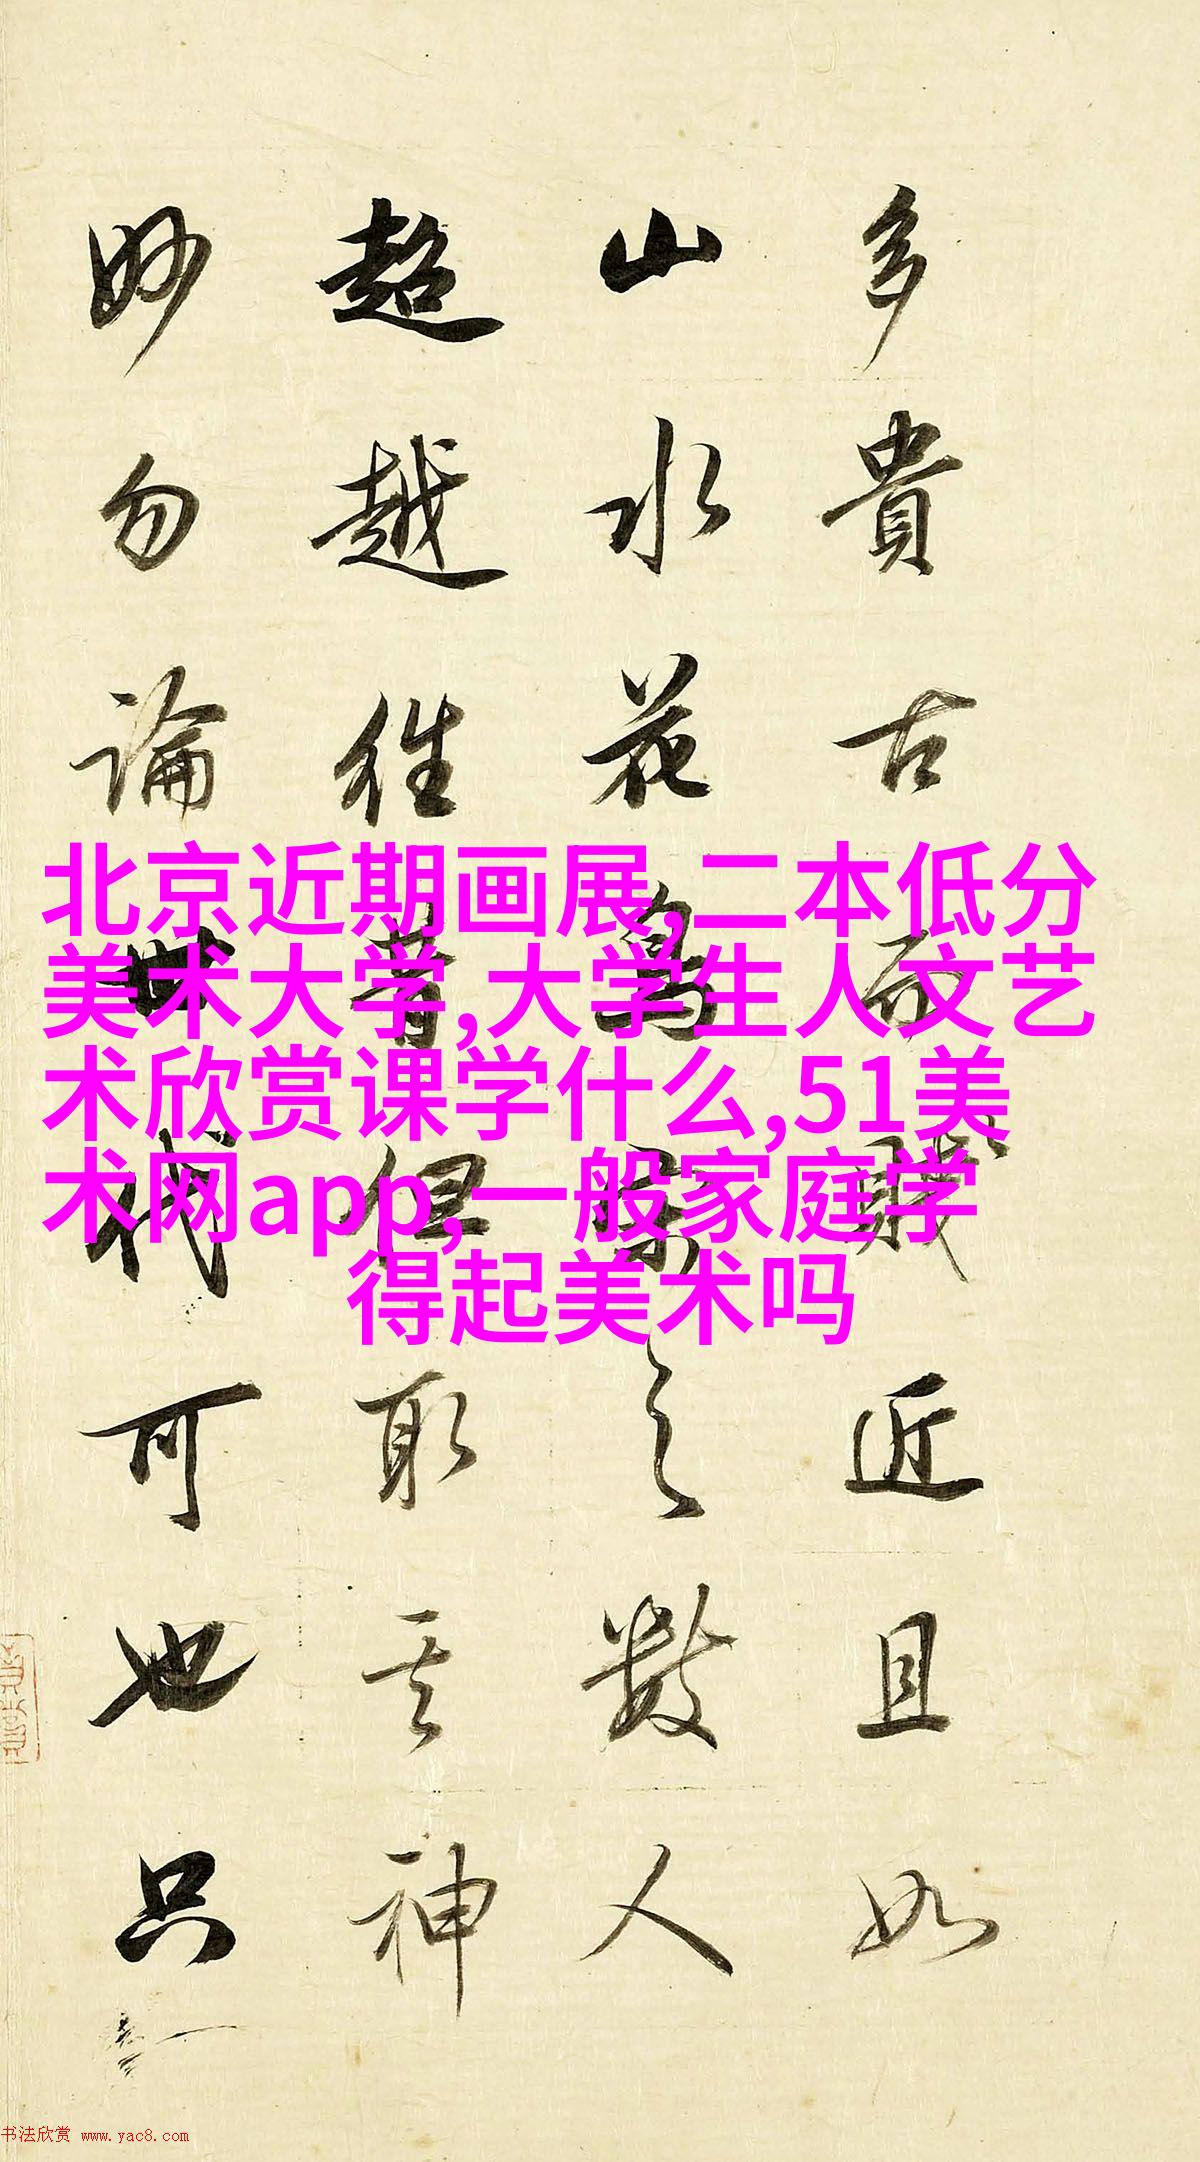 多貴古而賤近且如
山水花鳥之數人
超越往昔但取其神
妙勿論世代可也只
北京近期画展,二本低分
美术大学,大学生人文艺
术欣赏课学什么,51美
术网app,一般家庭学
得起美术吗
书法欣赏 www.yac8.com